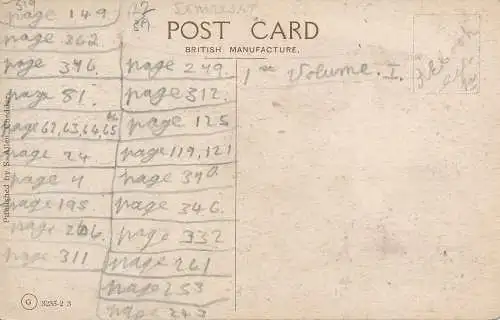 519
page 149
page 262
page 346.
page 81.
page 62,63,64,65
page 24
page 4
page 195
page 206
page 311
POST CARD
BRITISH MANUFACTURE.
page 249.
page 312.
page 125
page 119,121
page 340
page 346.
page 332
page 261
page 253
page 247
1st Volume. I.
Published by S. Allen
G 3255-2 3